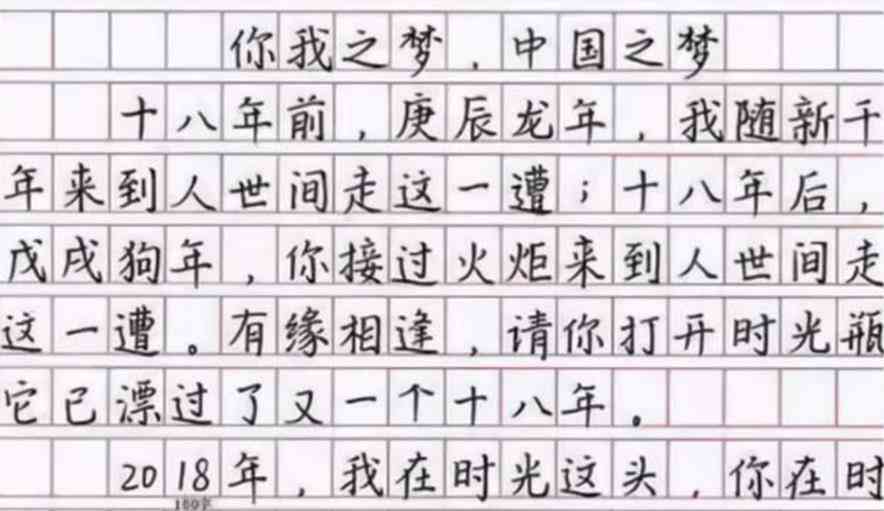 你我之梦，中国之梦
十八年前，庚辰龙年，我随新千
年来到人世间走这一遭；十八年后，
戊戌狗年，你接过火炬来到人世间走
这一遭。有缘相逢，请你打开时光瓶
它已漂过了又一个十八年。
2018年，我在时光这头，你在时
160字